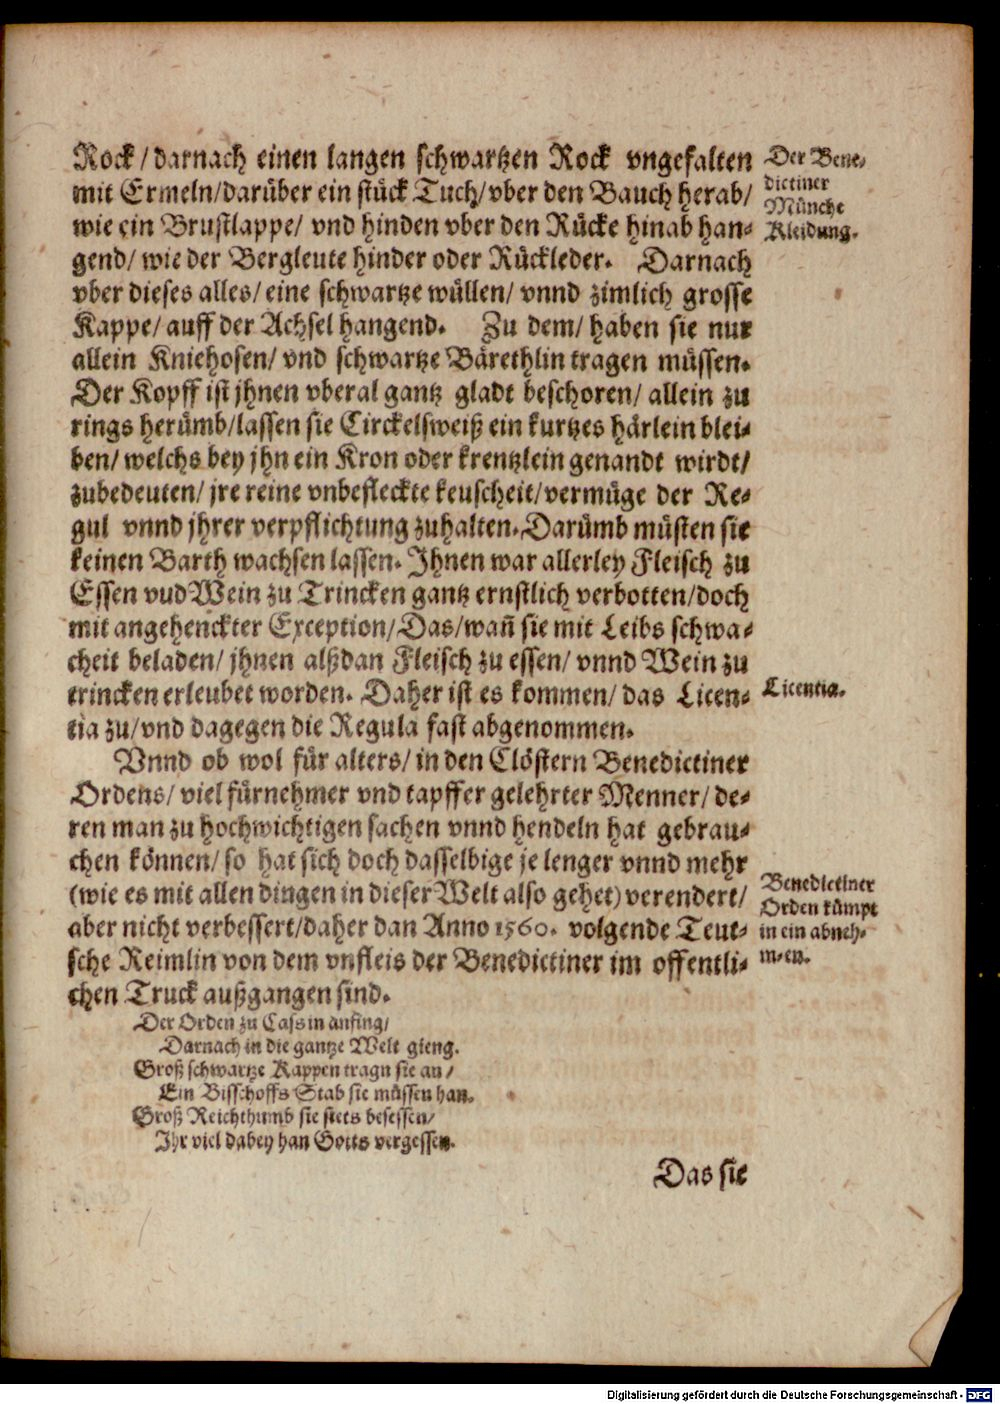 Rock / darnach einen langen schwartzen Rock vngefalten
mit Ermeln/darüber ein stück Tuch/vber den Bauch herab/
wie ein Brustlappe/ vnd hinden vber den Rücke hinab han-
gend/ wie der Bergleute hinder oder Rückleder. Darnach
vber dieses alles/ eine schwartze wüllen/ vnnd zimlich grosse
Kappe/ auff der Achsel hangend. Zu dem/ haben sie nur
allein Kniehosen/ vnd schwartze Bärethlin tragen müssen.
Der Kopff ist jhnen vberal gantz gladt beschoren/ allein zu
rings herümb/lassen sie Circkelsweiß ein kurtzes härlein blei-
ben/ welchs bey jhn ein Kron oder krentzlein genandt wirdt/
zubedeuten/ jre reine vnbefleckte keuscheit/vermüge der Re-
gul vnnd jhrer verpflichtung zuhalten. Darümb müsten sie
keinen Barth wachsen lassen. Ihnen war allerley Fleisch zu
Essen vud Wein zu Trincken gantz ernstlich verbotten/doch
mit angehenckter Exception/Das/wañ sie mit Leibs schwa-
cheit beladen/ jhnen alßdan Fleisch zu essen/ vnnd Wein zu
trincken erleubet worden. Daher ist es kommen/ das Licen-
tia zu/vnd dagegen die Regula fast abgenommen.
Vnnd ob wol für alters/ in den Clöstern Benedictiner
Ordens/ viel fürnehmer vnd tapffer gelehrter Menner/ de-
ren man zu hochwichtigen sachen vnnd hendeln hat gebrau-
chen können/ so hat sich doch dasselbige je lenger vnnd mehr
(wie es mit allen dingen in dieser Welt also gehet) verendert/
aber nicht verbessert/daher dan Anno 1560. volgende Teut-
sche Reimlin von dem vnfleis der Benedictiner im offentli-
chen Truck außgangen sind.
Der Orden zu Cassin anfing/
Darnach in die gantze Welt gieng.
Groß schwartze Kappen tragn sie an /
Ein Bisschoffs Stab sie müssen han.
Groß Reichthumb sie stets besessen/
Ihr viel dabey han Gotts vergessen.
Das sie
Der Bene-
dictiner
Münche
Kleidung.
Licentia.
Benedictiner
Orden kümpt
in ein abneh-
men.
Digitalisierung gefördert durch die Deutsche Forschungsgemeinschaft - DFG